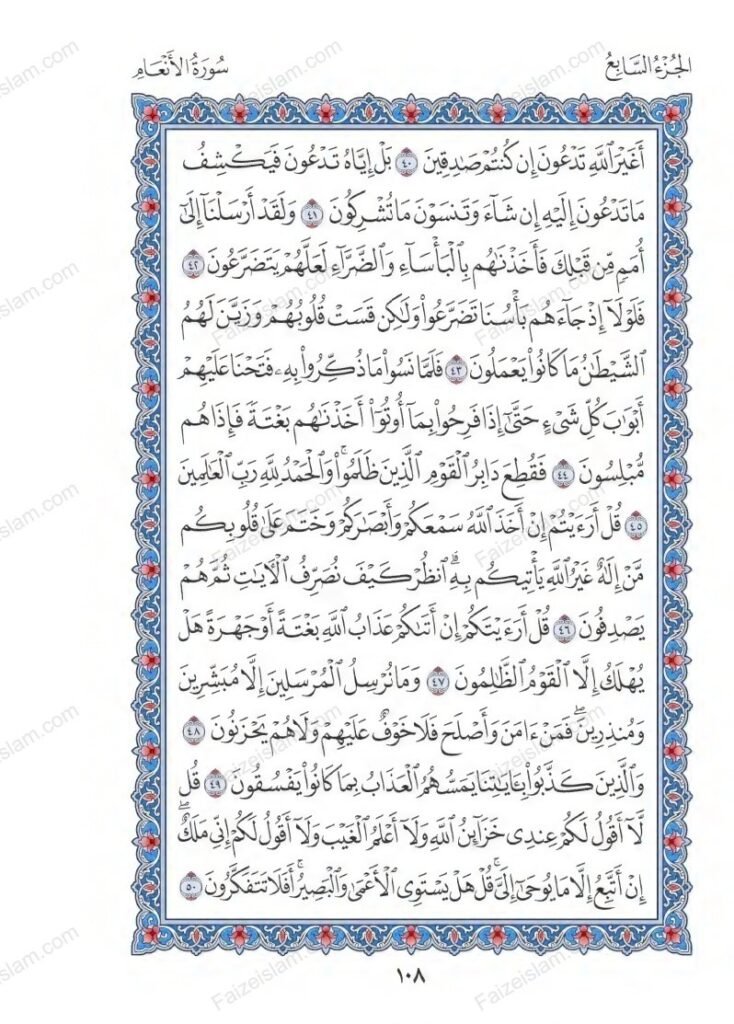 الجُزْءُ السَّابِعُ
سُورَةُ الأَنْعَامِ
أَغَيْرَ ٱللَّهِ تَدْعُونَ إِن كُنتُمْ صَٰدِقِينَ ٤٠ بَلْ إِيَّاهُ تَدْعُونَ فَيَكْشِفُ
مَا تَدْعُونَ إِلَيْهِ إِن شَآءَ وَتَنسَوْنَ مَا تُشْرِكُونَ ٤١ وَلَقَدْ أَرْسَلْنَآ إِلَىٰٓ
أُمَمٍ مِّن قَبْلِكَ فَأَخَذْنَٰهُم بِٱلْبَأْسَآءِ وَٱلضَّرَّآءِ لَعَلَّهُمْ يَتَضَرَّعُونَ ٤٢
فَلَوْلَآ إِذْ جَآءَهُم بَأْسُنَا تَضَرَّعُوا۟ وَلَٰكِن قَسَتْ قُلُوبُهُمْ وَزَيَّنَ لَهُمُ
ٱلشَّيْطَٰنُ مَا كَانُوا۟ يَعْمَلُونَ ٤٣ فَلَمَّا نَسُوا۟ مَا ذُكِّرُوا۟ بِهِۦ فَتَحْنَا عَلَيْهِمْ
أَبْوَٰبَ كُلِّ شَىْءٍ حَتَّىٰٓ إِذَا فَرِحُوا۟ بِمَآ أُوتُوٓا۟ أَخَذْنَٰهُم بَغْتَةً فَإِذَا هُم
مُّبْلِسُونَ ٤٤ فَقُطِعَ دَابِرُ ٱلْقَوْمِ ٱلَّذِينَ ظَلَمُوا۟ۚ وَٱلْحَمْدُ لِلَّهِ رَبِّ ٱلْعَٰلَمِينَ
٤٥ قُلْ أَرَءَيْتُمْ إِنْ أَخَذَ ٱللَّهُ سَمْعَكُمْ وَأَبْصَٰرَكُمْ وَخَتَمَ عَلَىٰ قُلُوبِكُم
مَّنْ إِلَٰهٌ غَيْرُ ٱللَّهِ يَأْتِيكُم بِهِۗ ٱنظُرْ كَيْفَ نُصَرِّفُ ٱلْءَايَٰتِ ثُمَّ هُمْ
يَصْدِفُونَ ٤٦ قُلْ أَرَءَيْتَكُمْ إِنْ أَتَىٰكُمْ عَذَابُ ٱللَّهِ بَغْتَةً أَوْ جَهْرَةً هَلْ
يُهْلَكُ إِلَّا ٱلْقَوْمُ ٱلظَّٰلِمُونَ ٤٧ وَمَا نُرْسِلُ ٱلْمُرْسَلِينَ إِلَّا مُبَشِّرِينَ
وَمُنذِرِينَۖ فَمَنْ ءَامَنَ وَأَصْلَحَ فَلَا خَوْفٌ عَلَيْهِمْ وَلَا هُمْ يَحْزَنُونَ ٤٨
وَٱلَّذِينَ كَذَّبُوا۟ بِـَٔايَٰتِنَا يَمَسُّهُمُ ٱلْعَذَابُ بِمَا كَانُوا۟ يَفْسُقُونَ ٤٩ قُل
لَّآ أَقُولُ لَكُمْ عِندِى خَزَآئِنُ ٱللَّهِ وَلَآ أَعْلَمُ ٱلْغَيْبَ وَلَآ أَقُولُ لَكُمْ إِنِّى مَلَكٌۖ
إِنْ أَتَّبِعُ إِلَّا مَا يُوحَىٰٓ إِلَىَّۚ قُلْ هَلْ يَسْتَوِى ٱلْأَعْمَىٰ وَٱلْبَصِيرُۚ أَفَلَا تَتَفَكَّرُونَ ٥٠
١٠٨
Faizeislam.com